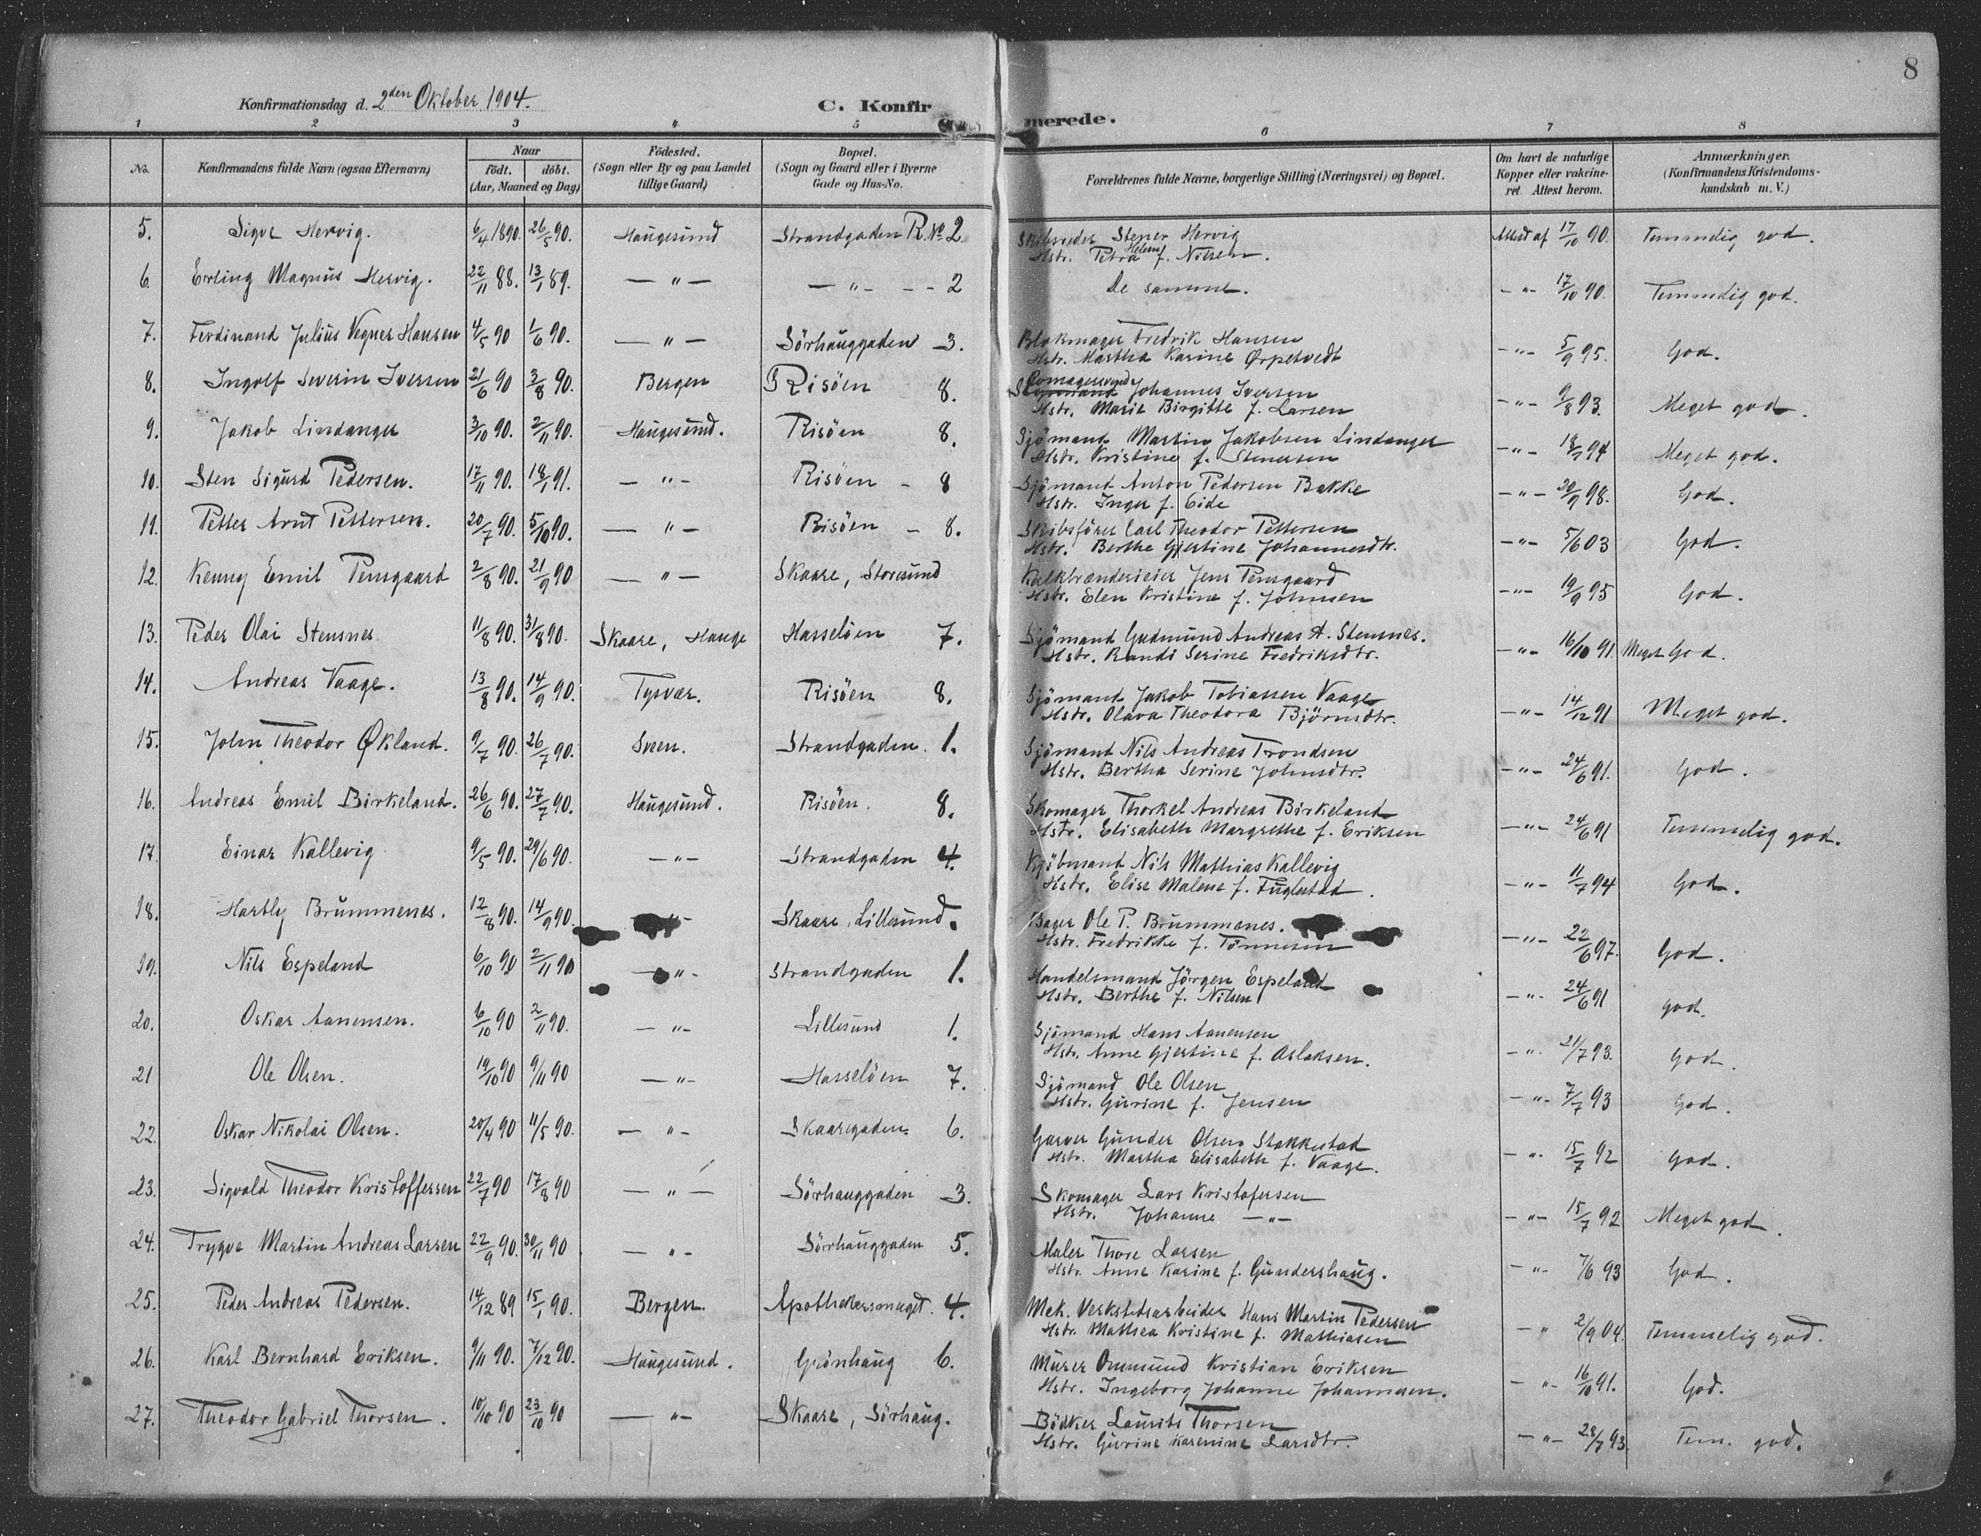 8
Konfirmationsdag d. 2den Oktober 1904.
C. Konfirmerede.
1 2 3 4 5 6 7 8
No. | Konfirmandens fulde Navn (ogsaa Efternavn) | Naar født. døbt. (Aar, Maaned og Dag) | Fødested. (Sogn eller By og paa Landet tillige Gaard) | Bopæl. (Sogn og Gaard eller i Byerne Gade og Hus-No. | Forældrenes fulde Navne, borgerlige Stilling (Næringsvei) og Bopæl. | Om havt de naturlige Kopper eller vakcineret. Attest herom. | Anmærkninger. (Konfirmandens Kristendomskundskab m. V.)
5. Sigve Hervig. 6/4 1890. 26/5 90. Haugesund Strandgaden R. No 2. Skibsreder Stener Hervig Attest af 17/10 90. Temmelig god.
Hstr. Petra Helene f. Nilsen.
6. Erling Magnus Hervig. 22/11 88. 13/1 89. — " — — " — - - 2 De samme. — " — 17/10 90. Temmelig god.
7. Ferdinand Julius Vegner Hansen 4/5 90 1/6 90. — " — Sörhauggaden 3. Blokmager Fredrik Hansen — " — 5/9 95. God.
Hstr. Martha Karine Ørpetvedt
8. Ingolf Severin Iversen 21/6 90 3/8 90. Bergen Risöen 8. Skomagersvend Johannes Iversen — " — 9/8 93. Meget god.
Hstr. Marie Birgitte f. Larsen
9. Jakob Lindanger 3/10 90. 2/11 90. Haugesund. Risöen 8. Sjömand Martin Jakobsen Lindanger — " — 94 Meget god.
Hstr. Kristine f. Stenersen
10. Sten Sigurd Pedersen. 17/11 90. 18/1 91. — " — Risöen - 8 Sjömand Anton Pedersen Bakke — " — 20/9 98. God.
Hstr. Inger f. Eide
11. Petter Arnt Pettersen. 20/7 90. 5/10 90. — " — Risöen - 8. Skibsförer Carl Theodor Pettersen — " — 5/6 03 God.
Hstr. Berthe Gjertine Johannesdtr.
12. Kenny Emil Pensgaard 2/8 90. 21/9 90 — " — Skaare, Storesund Kalkbrænderieier Jens Pensgaard — " — 19/9 95 God.
Hstr. Elen Kristine f. Johnsen
13. Peder Olai Stensnes. 11/8 90. 31/8 90. Skaare, Hauge Hasselöen 7. Sjömand Gudmund Andreas A. Stensnes. — " — 16/10 91. Meget God.
Hstr. Randi Serine Fredriksdtr.
14. Andreas Vaage. 13/8 90. 14/9 90. Tysvær. Risöen 8. Sjömand Jakob Tobiassen Vaage — " — 14/12 91 Meget god.
Hstr. Olava Theodora Björnsdtr.
15. John Theodor Økland. 9/7 90. 26/7 90. Sveen. Strandgaden. 1. Sjömand Nils Andreas Trondsen — " — 24/6 91. God.
Hstr. Bertha Serine Johnsdtr.
16. Andreas Emil Birkeland. 26/6 90. 27/7 90. Haugesund. Risöen. 8. Skomager Thorkel Andreas Birkeland — " — 24/6 91 Temmelig god.
Hstr. Elisabeth Margrethe f. Eriksen
17. Einar Kallevig 9/5 90. 29/6 90. — " — Strandgaden 4. Kjöbmand Nils Mathias Kallevig — " — 11/7 94 God.
Hstr. Elise Malene f. Fuglestad.
18. Hartly Brummenes. 12/8 90. 14/9 90. — " — Skaare, Lillesund. Bager Ole P. Brummenes. — " — 22/6 97. God.
Hstr. Fredrikke f. Tönnesen
19. Nils Espeland 6/10 90 2/11 90 — " — Strandgaden 1. Handelsmand Jörgen Espeland — " — 24/6 91 god.
Hstr. Berthe f. Nilsen
20. Oskar Aanensen. 6/10 90 2/11 90. — " — Lillesund 1. Sjömand Hans Aanensen — " — 21/7 93. God.
Hstr. Anne Gjertine f. Aslaksen.
21 Ole Olsen. 19/10 90 9/11 90 — " — Hasselöen 7. Sjömand Ole Olsen — " — 7/7 93 God.
Hstr. Gurine f. Jensen
22. Oskar Nikolai Olsen. 20/4 90 11/5 90. — " — Skaaregaden 6. Garver Gunder Olsen Stakkestad — " — 15/7 92 God.
Hstr. Martha Elisabeth f. Vaage.
23. Sigvald Theodor Kristoffersen 22/7 90 17/8 90 — " — Sörhauggaden 3. Skomager Lars Kristofersen — " — 15/7 92 Meget god.
Hstr. Johanne — " —
24. Trygve Martin Andreas Larsen 22/9 90. 30/11 90 — " — Sörhauggaden 5. Maler Thore Larsen — " — 7/6 93 God.
Hstr. Anne Karine f. Gundershaug.
25. Peder Andreas Pedersen. 14/12 89 15/1 90. Bergen. Apothekersmuget. 4. Mek. Verkstedsarbeider Hans Martin Pedersen — " 2/9 04. Temmelig god.
Hstr. Mathea Kristine f. Mathiasen
26. Karl Bernhard Eriksen. 9/11 90. 7/12 90. Haugesund. Grönhaug 6. Murer Ommund Kristian Eriksen — " — 16/10 91. God.
Hstr. Ingeborg Johanne Johannesen.
27. Theodor Gabriel Thorsen. 10/10 90 23/10 90 — " — Skaare, Sörhaug. Bödker Laurits Thorsen — " — 28/7 93. Tem. god.
Hstr. Gurine Karenine Larsdtr.